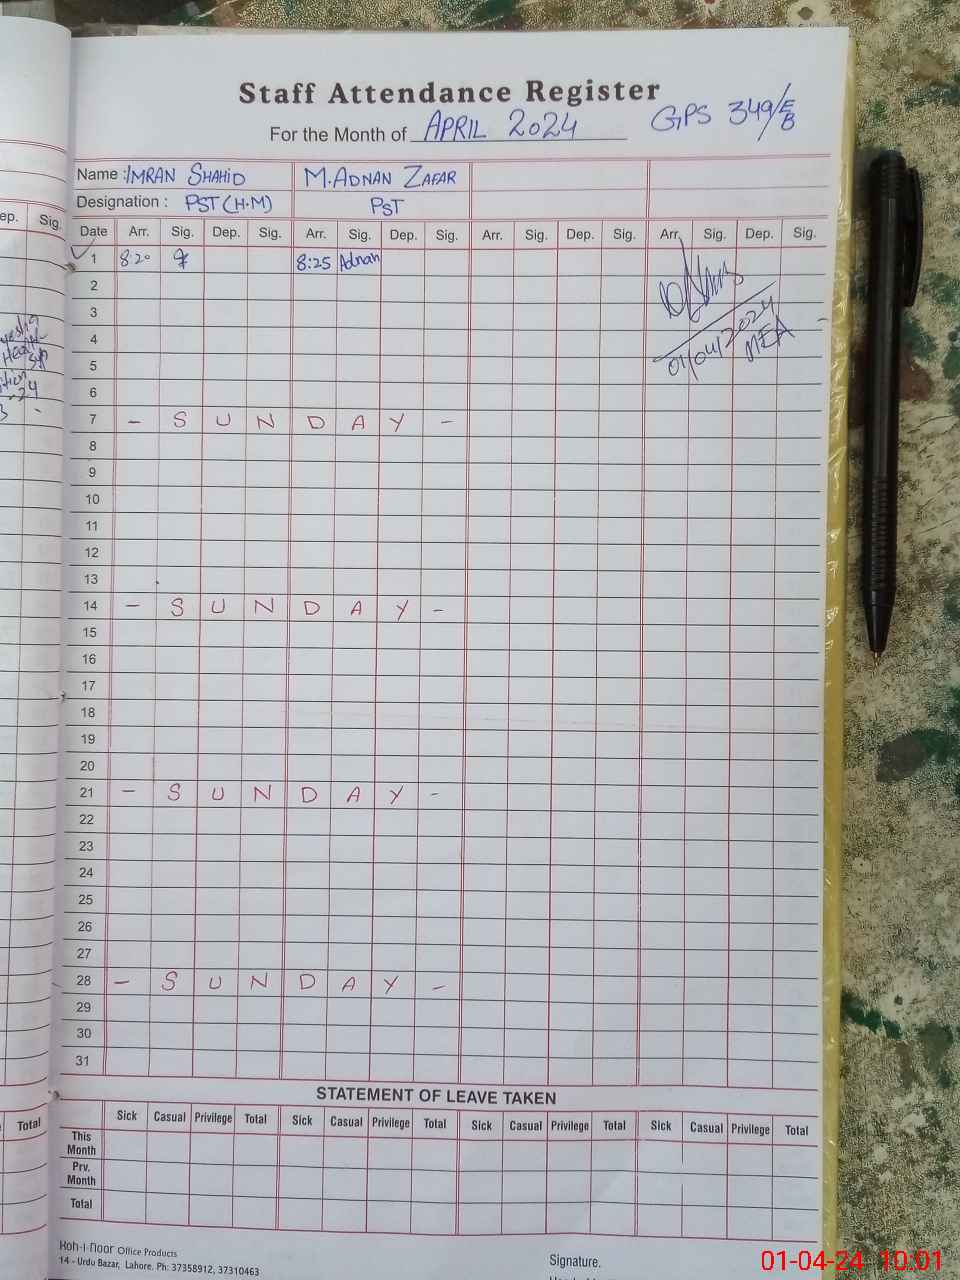 Staff Attendance Register
For the Month of APRIL 2024 GPS 349/EB
Name : IMRAN SHAHID M.ADNAN ZAFAR
Designation : PST (H.M) PST
Date Arr. Sig. Dep. Sig. Arr. Sig. Dep. Sig. Arr. Sig. Dep. Sig. Arr. Sig. Dep. Sig.
1 8:20 8:25 Adnan
2
3
4
5
01/04/2024
MEA
6
7 - S U N D A Y -
8
9
10
11
12
13
14 - S U N D A Y -
15
16
17
18
19
20
21 - S U N D A Y -
22
23
24
25
26
27
28 - S U N D A Y -
29
30
31
STATEMENT OF LEAVE TAKEN
Sick Casual Privilege Total Sick Casual Privilege Total Sick Casual Privilege Total Sick Casual Privilege Total
This Month
Prv. Month
Total
Koh-i-Noor Office Products
14 - Urdu Bazar, Lahore. Ph: 37358912, 37310463
Signature.
ep. Sig.
Total
01-04-24 10:01